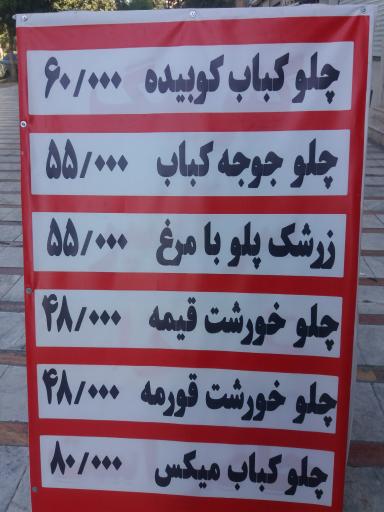 چلو کباب کوبیده ۶۰/۰۰۰
چلو جوجه کباب ۵۵/۰۰۰
زرشک پلو با مرغ ۵۵/۰۰۰
چلو خورشت قیمه ۴۸/۰۰۰
چلو خورشت قورمه ۴۸/۰۰۰
چلو کباب میکس ۸۰/۰۰۰